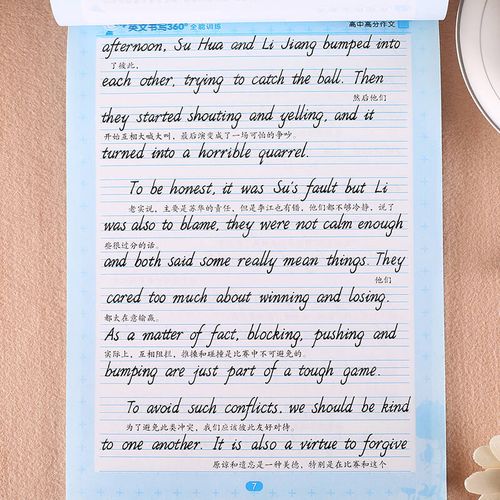 英文书写360°全能训练
高中高分作文
afternoon, Su Hua and Li Jiang bumped into
了彼此,
each other, trying to catch the ball. Then
然后他们
they started shouting and yelling, and it
开始互相大喊大叫，最后演变成了一场可怕的争吵。
turned into a horrible quarrel.
To be honest, it was Su's fault but Li
老实说，主要是苏华的责任，但是李江也有错，他们都不够冷静，说了
was also to blame, they were not calm enough
些很过分的话。
and both said some really mean things. They
他们
cared too much about winning and losing.
都太在意输赢。
As a matter of fact, blocking, pushing and
实际上，互相阻拦，推搡和碰撞是比赛中不可避免的。
bumping are just part of a tough game.
To avoid such conflicts, we should be kind
为了避免此类冲突，我们应该彼此友好对待。
to one another. It is also a virtue to forgive
原谅和遗忘是一种美德，特别是在比赛和这个
7